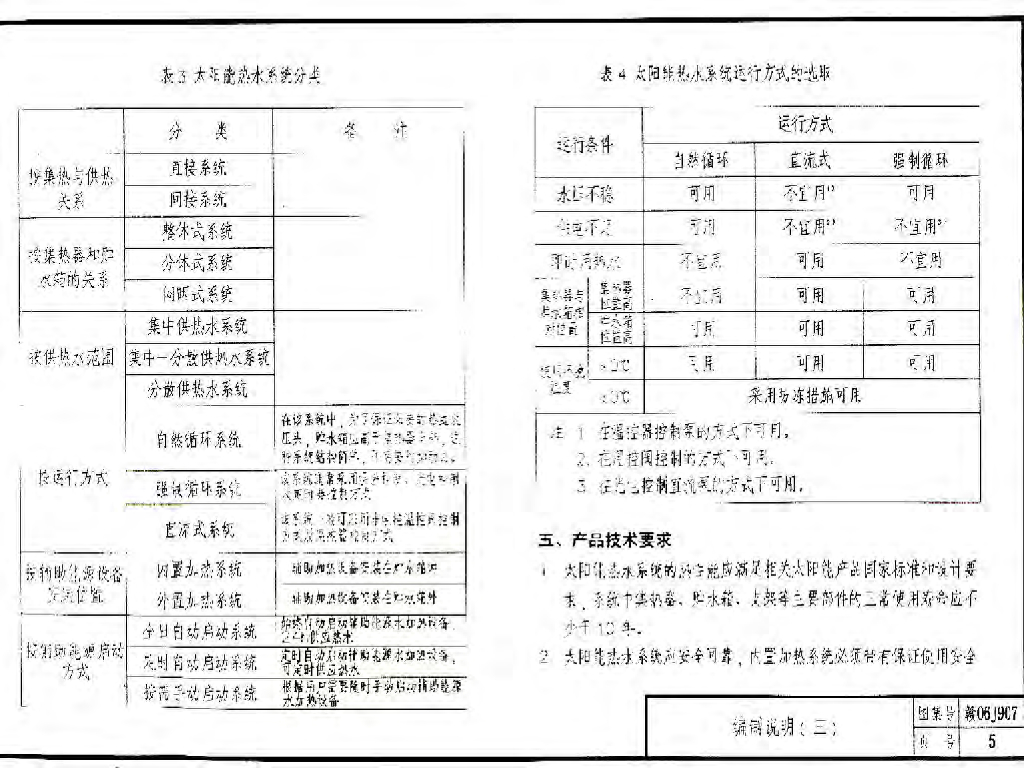 表 3 太阳能热水系统分类
分 类
按集热与供热
关系
直接系统
间接系统
按集热器和贮
水箱的关系
整体式系统
分体式系统
间距式系统
按供热水范围
集中供热水系统
集中—分散供热水系统
分散供热水系统
按运行方式
自然循环系统
强制循环系统
直流式系统
按辅助能源设备
安装位置
内置加热系统
辅助加热设备安装在贮水箱内
外置加热系统
辅助加热设备安装在贮水箱外
按辅助能源启动
方式
全日自动启动系统
定时自动启动系统
定时自动启动辅助能源水加热设备,
可定时供应热水
按需手动启动系统
根据用户需要随时手动启动辅助能源
水加热设备
表 4 太阳能热水系统运行方式的选取
运行条件
运行方式
自然循环 直流式 强制循环
水压不稳 可用 不宜用¹⁾ 可用
供电不足 可用 不宜用²⁾ 不宜用³⁾
即时用热水 不宜用 可用 不宜用
集热器与
贮水箱相
对位置
集热器
位置高
不宜用 可用 可用
贮水箱
位置高
可用 可用 可用
使用环境
温度
>0℃ 可用 可用 可用
≤0℃ 采用防冻措施可用
注 1. 在温控器控制泵的方式下可用。
2. 在温控阀控制的方式下可用。
3. 在光电控制直流泵的方式下可用。
五、产品技术要求
1 太阳能热水系统的热性能应满足相关太阳能产品国家标准和设计要
求,系统中集热器、贮水箱、支架等主要部件的正常使用寿命应不
少于10年。
2 太阳能热水系统应安全可靠,内置加热系统必须带有保证使用安全
编制说明(三)
图集号 赣06J907
页 号 5